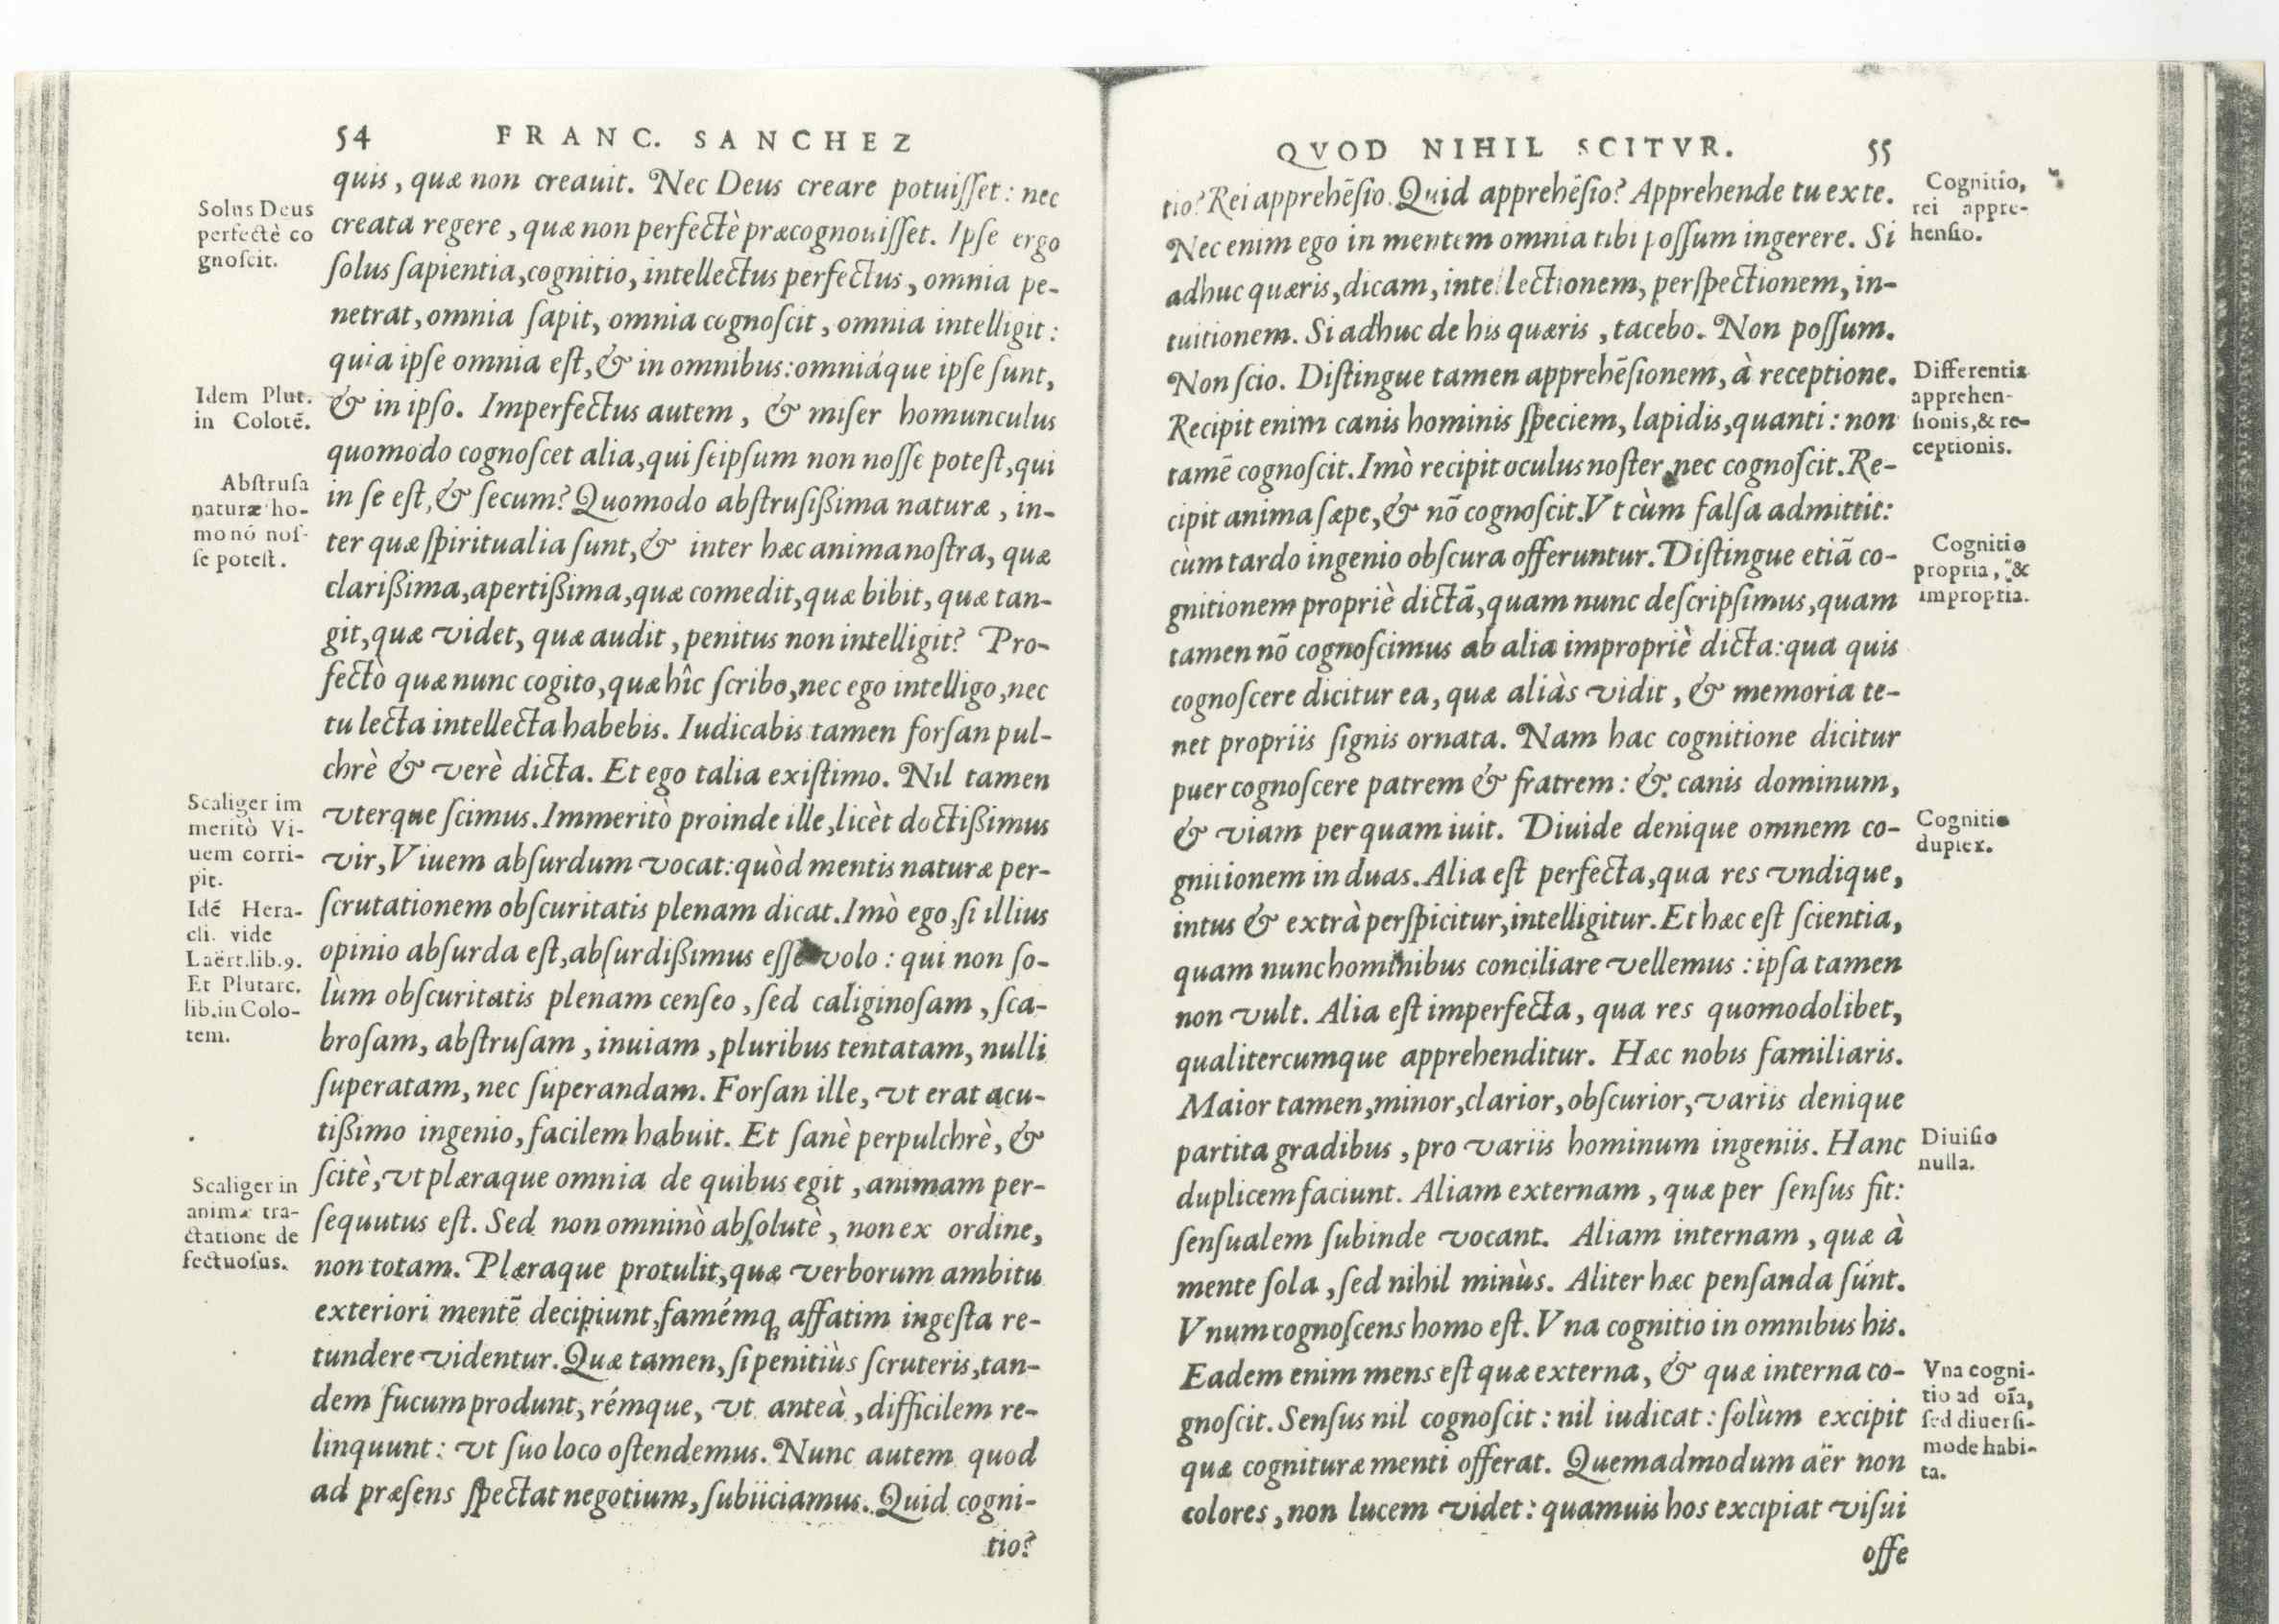 54 FRANC. SANCHEZ
quis, quæ non creauit. Nec Deus creare potuiſſet: nec
creata regere, quæ non perfectè præcognouiſſet. Ipſe ergo
ſolus ſapientia, cognitio, intellectus perfectus, omnia pe-
netrat, omnia ſapit, omnia cognoſcit, omnia intelligit:
quia ipſe omnia eſt, & in omnibus: omniáque ipſe ſunt,
& in ipſo. Imperfectus autem, & miſer homunculus
quomodo cognoſcet alia, qui ſeipſum non noſſe poteſt, qui
in ſe eſt, & ſecum? Quomodo abſtruſißima naturæ, in-
ter quæ ſpiritualia ſunt, & inter hæc anima noſtra, quæ
clarißima, apertißima, quæ comedit, quæ bibit, quæ tan-
git, quæ videt, quæ audit, penitus non intelligit? Pro-
fectò quæ nunc cogito, quæ hîc ſcribo, nec ego intelligo, nec
tu lecta intellecta habebis. Iudicabis tamen forſan pul-
chrè & verè dicta. Et ego talia exiſtimo. Nil tamen
vterque ſcimus. Immeritò proinde ille, licèt doctißimus
vir, Viuem abſurdum vocat: quòd mentis naturæ per-
ſcrutationem obſcuritatis plenam dicat. Imò ego, ſi illius
opinio abſurda eſt, abſurdißimus eſſe volo: qui non ſo-
lùm obſcuritatis plenam cenſeo, ſed caliginoſam, ſca-
broſam, abſtruſam, inuiam, pluribus tentatam, nulli
ſuperatam, nec ſuperandam. Forſan ille, vt erat acu-
tißimo ingenio, facilem habuit. Et ſanè perpulchrè, &
ſcitè, vt plæraque omnia de quibus egit, animam per-
ſequutus eſt. Sed non omninò abſolutè, non ex ordine,
non totam. Plæraque protulit, quæ verborum ambitu
exteriori mentē decipiunt, famémq; affatim ingeſta re-
tundere videntur. Quæ tamen, ſi penitiùs ſcruteris, tan-
dem fucum produnt, rémque, vt anteà, difficilem re-
linquunt: vt ſuo loco oſtendemus. Nunc autem quod
ad præſens ſpectat negotium, ſubiiciamus. Quid cogni-
tio?
Solus Deus
perfectè co
gnoſcit.
Idem Plut.
in Colotē.
Abſtruſa
naturæ ho-
mo nō noſ-
ſe poteſt.
Scaliger im
meritò Vi-
uem corri-
pit.
Idē Hera-
cli. vide
Laërt.lib.9.
Et Plutarc.
lib.in Colo-
tem.
Scaliger in
animæ tra-
ctatione de
fectuoſus.
QVOD NIHIL SCITVR. 55
tio? Rei apprehēſio. Quid apprehēſio? Apprehende tu ex te.
Nec enim ego in mentem omnia tibi poſſum ingerere. Si
adhuc quæris, dicam, intellectionem, perſpectionem, in-
tuitionem. Si adhuc de his quæris, tacebo. Non poſſum.
Non ſcio. Diſtingue tamen apprehēſionem, à receptione.
Recipit enim canis hominis ſpeciem, lapidis, quanti: non
tamē cognoſcit. Imò recipit oculus noſter, nec cognoſcit. Re-
cipit anima ſæpe, & nō cognoſcit. Vt cùm falſa admittit:
cùm tardo ingenio obſcura offeruntur. Diſtingue etiā co-
gnitionem propriè dictā, quam nunc deſcripſimus, quam
tamen nō cognoſcimus ab alia impropriè dicta: qua quis
cognoſcere dicitur ea, quæ aliàs vidit, & memoria te-
net propriis ſignis ornata. Nam hac cognitione dicitur
puer cognoſcere patrem & fratrem: & canis dominum,
& viam per quam iuit. Diuide denique omnem co-
gnitionem in duas. Alia eſt perfecta, qua res vndique,
intus & extrà perſpicitur, intelligitur. Et hæc eſt ſcientia,
quam nunc hominibus conciliare vellemus: ipſa tamen
non vult. Alia eſt imperfecta, qua res quomodolibet,
qualitercumque apprehenditur. Hæc nobis familiaris.
Maior tamen, minor, clarior, obſcurior, variis denique
partita gradibus, pro variis hominum ingeniis. Hanc
duplicem faciunt. Aliam externam, quæ per ſenſus fit:
ſenſualem ſubinde vocant. Aliam internam, quæ à
mente ſola, ſed nihil minùs. Aliter hæc penſanda ſunt.
Vnum cognoſcens homo eſt. Vna cognitio in omnibus his.
Eadem enim mens eſt quæ externa, & quæ interna co-
gnoſcit. Senſus nil cognoſcit: nil iudicat: ſolùm excipit
quæ cognituræ menti offerat. Quemadmodum aër non
colores, non lucem videt: quamuis hos excipiat viſui
offe
Cognitio,
rei appre-
henſio.
Differentia
apprehen-
ſionis, & re-
ceptionis.
Cognitio
propria, &
impropria.
Cognitio
duplex.
Diuiſio
nulla.
Vna cogni-
tio ad oīa,
ſed diuerſi-
mode habi-
ta.